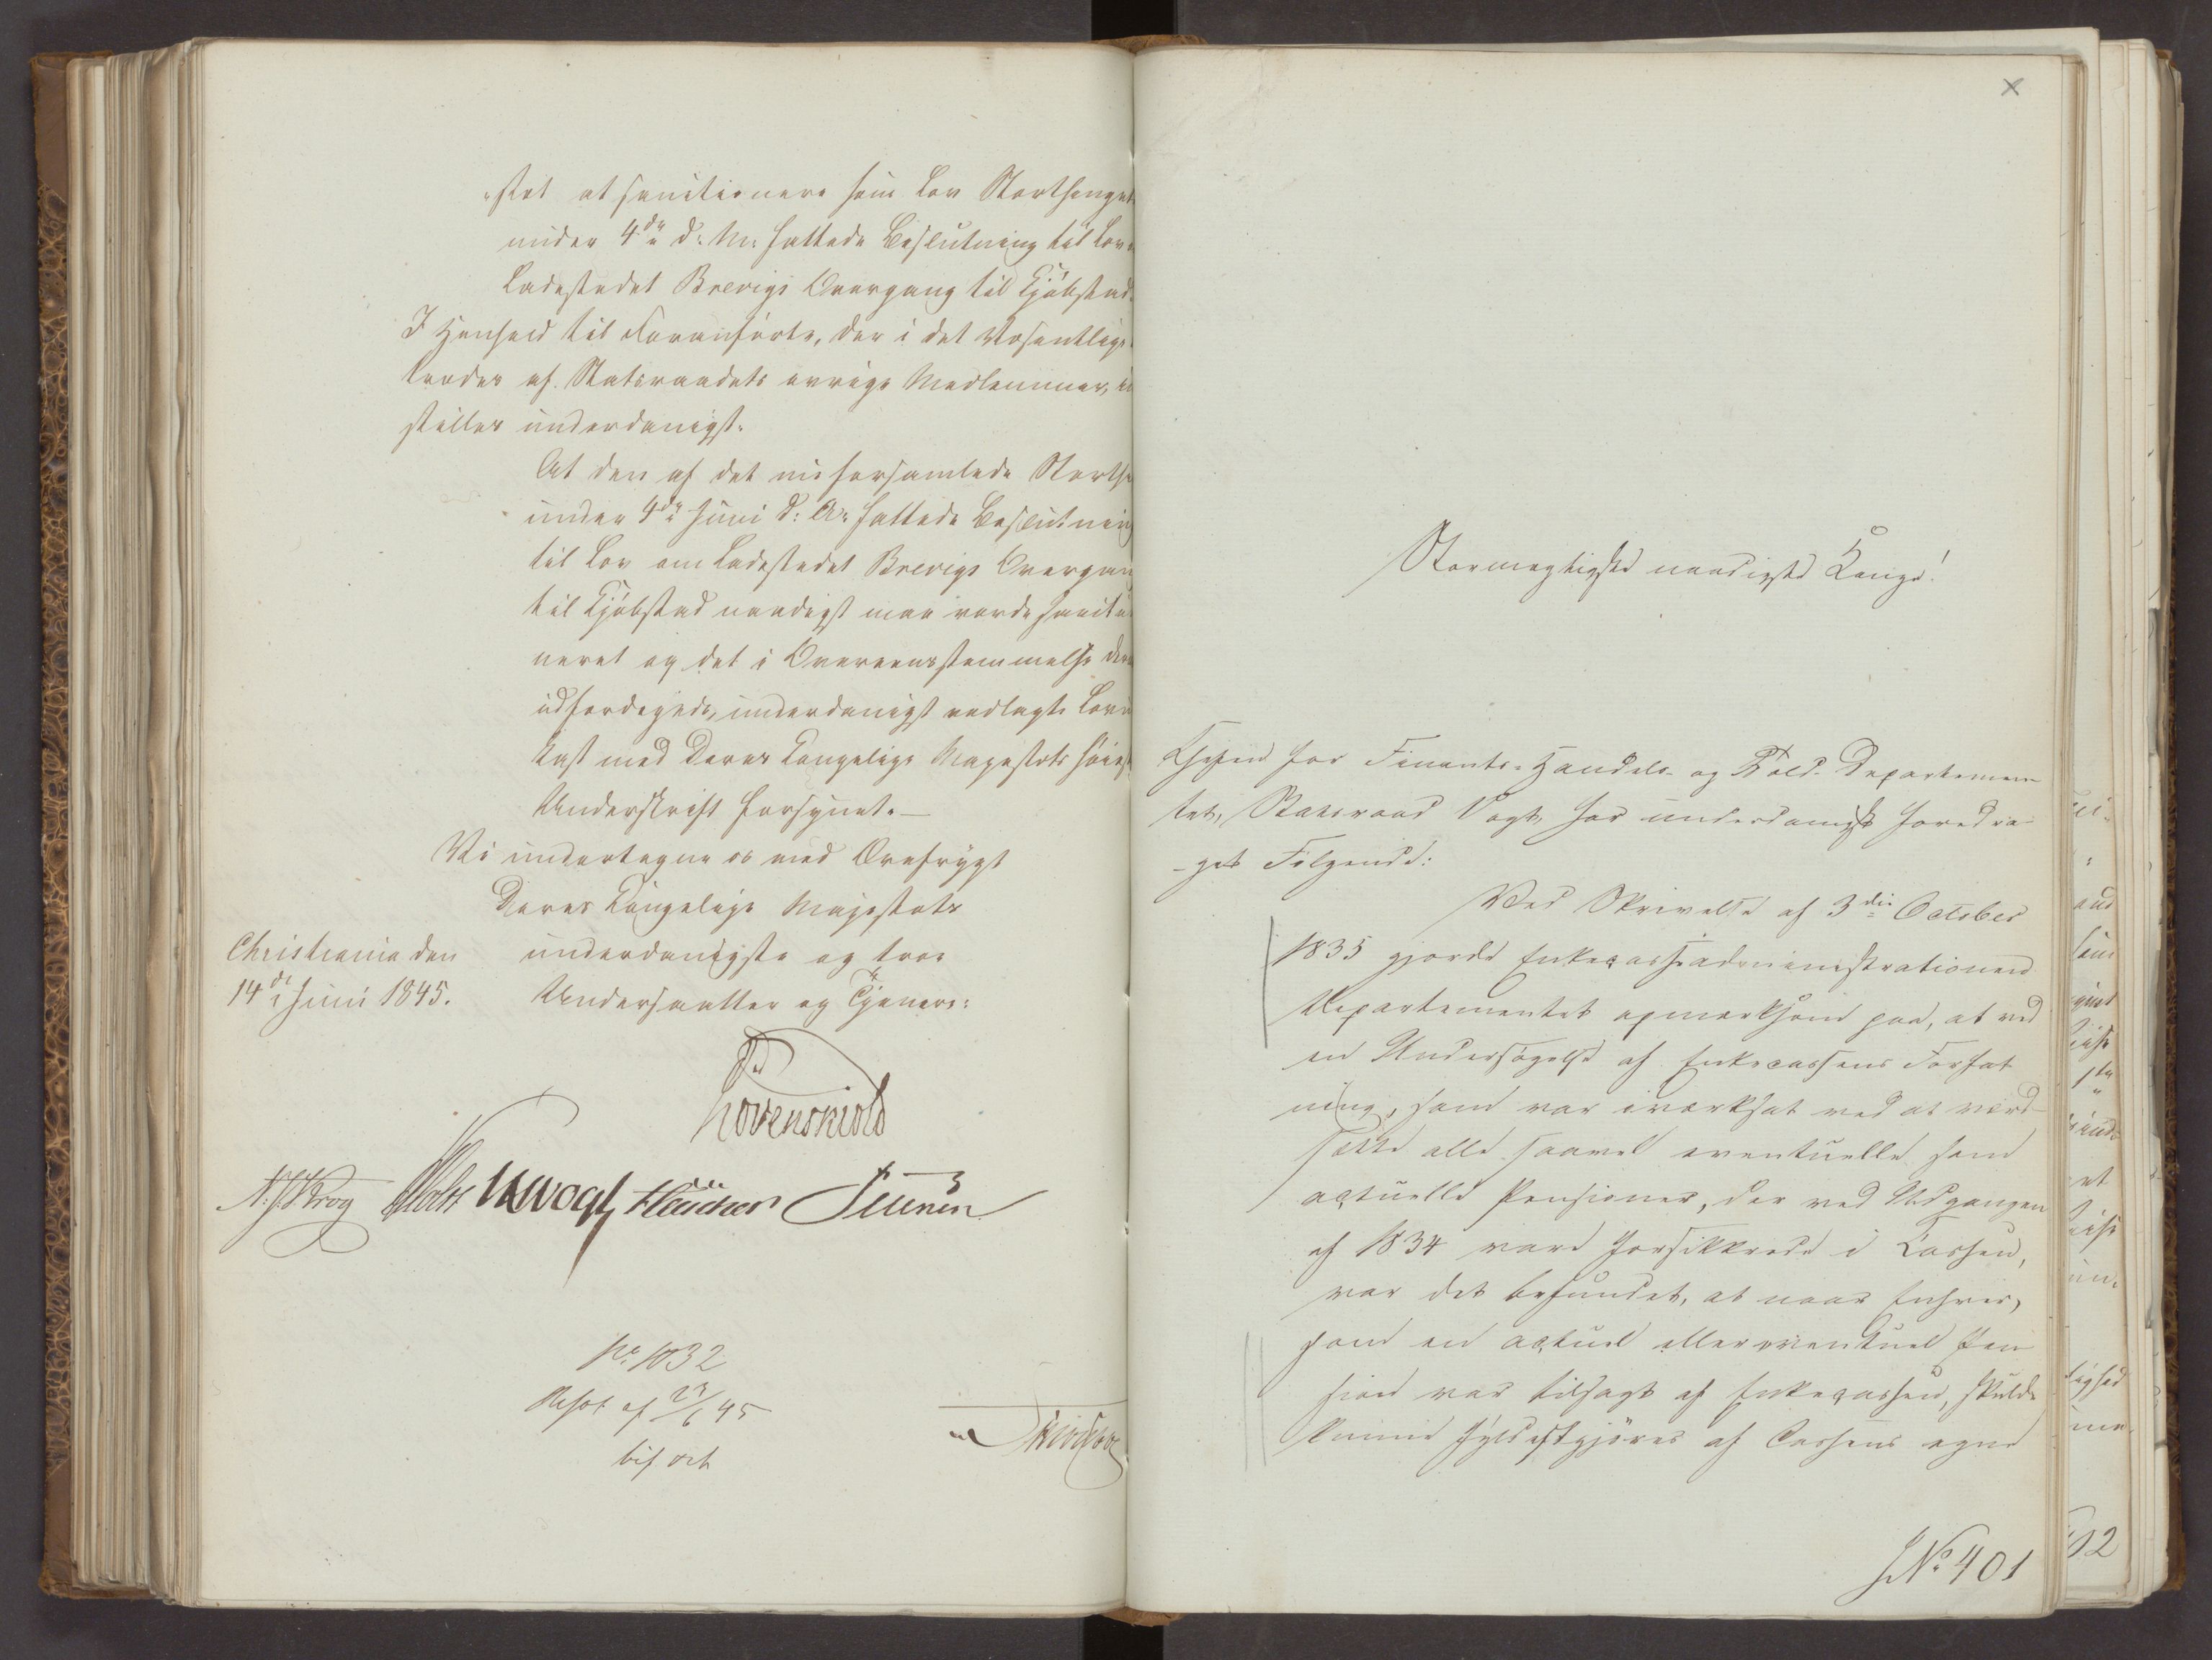 -stæt at sanctionere som Lov Storthingets
under 4de d: M: fattede Beslutning til Lov
Ladestedet Brevigs Overgang til Kjøbstad.
I Henhold til Foranførte, der i det Væsentlige
tiltrædes af Statsraadets øvrige Medlemmer, ind
stilles underdanigst:
At den af det nu forsamlede Storth
under 4de Juni d: A: fattede Beslutning
til Lov om Ladestedet Brevigs Overgan
til Kjøbstad naadigst maa vorde sanctio
neret og det i Overeensstemmelse der
udfærdigede, underdanigst vedlagte Lovud
kast med Deres Kongelige Majestæts høie
Underskrift forsynet.
Vi undertegne os med Ærefrygt
Deres Kongelige Majestæts
Christiania den underdanigste og troe
14de Juni 1845. Undersaatter og Tjenere:
Løvenskiold
N. J. Krog Holst JHVogt
No 1032
Resol af 23/6 45
bif ort
Stormægtigste naadigste Konge!
Chefen for Finants- Handels- og Told-Departemen
tet, Statsraad Vogt, har underdanigst foredra
-get Følgende:
Ved Skrivelse af 3die October
1835 gjorde Enkecasseadministrationen
Departementet opmærksom paa, at ved
en Undersøgelse af Enkecassens Forfat
ning, som var iværksat ved at værd-
sætte alle saavel eventuelle som
actuelle Pensioner, der ved Udgangen
af 1834 vare forsikkrede i Cassen,
var det befundet, at naar Enhver,
som en actuel eller eventuel Pen
sion var tilsagt af Enkecassen, skulde
kunne fyldestgjøres af Cassens egne
J.No 401